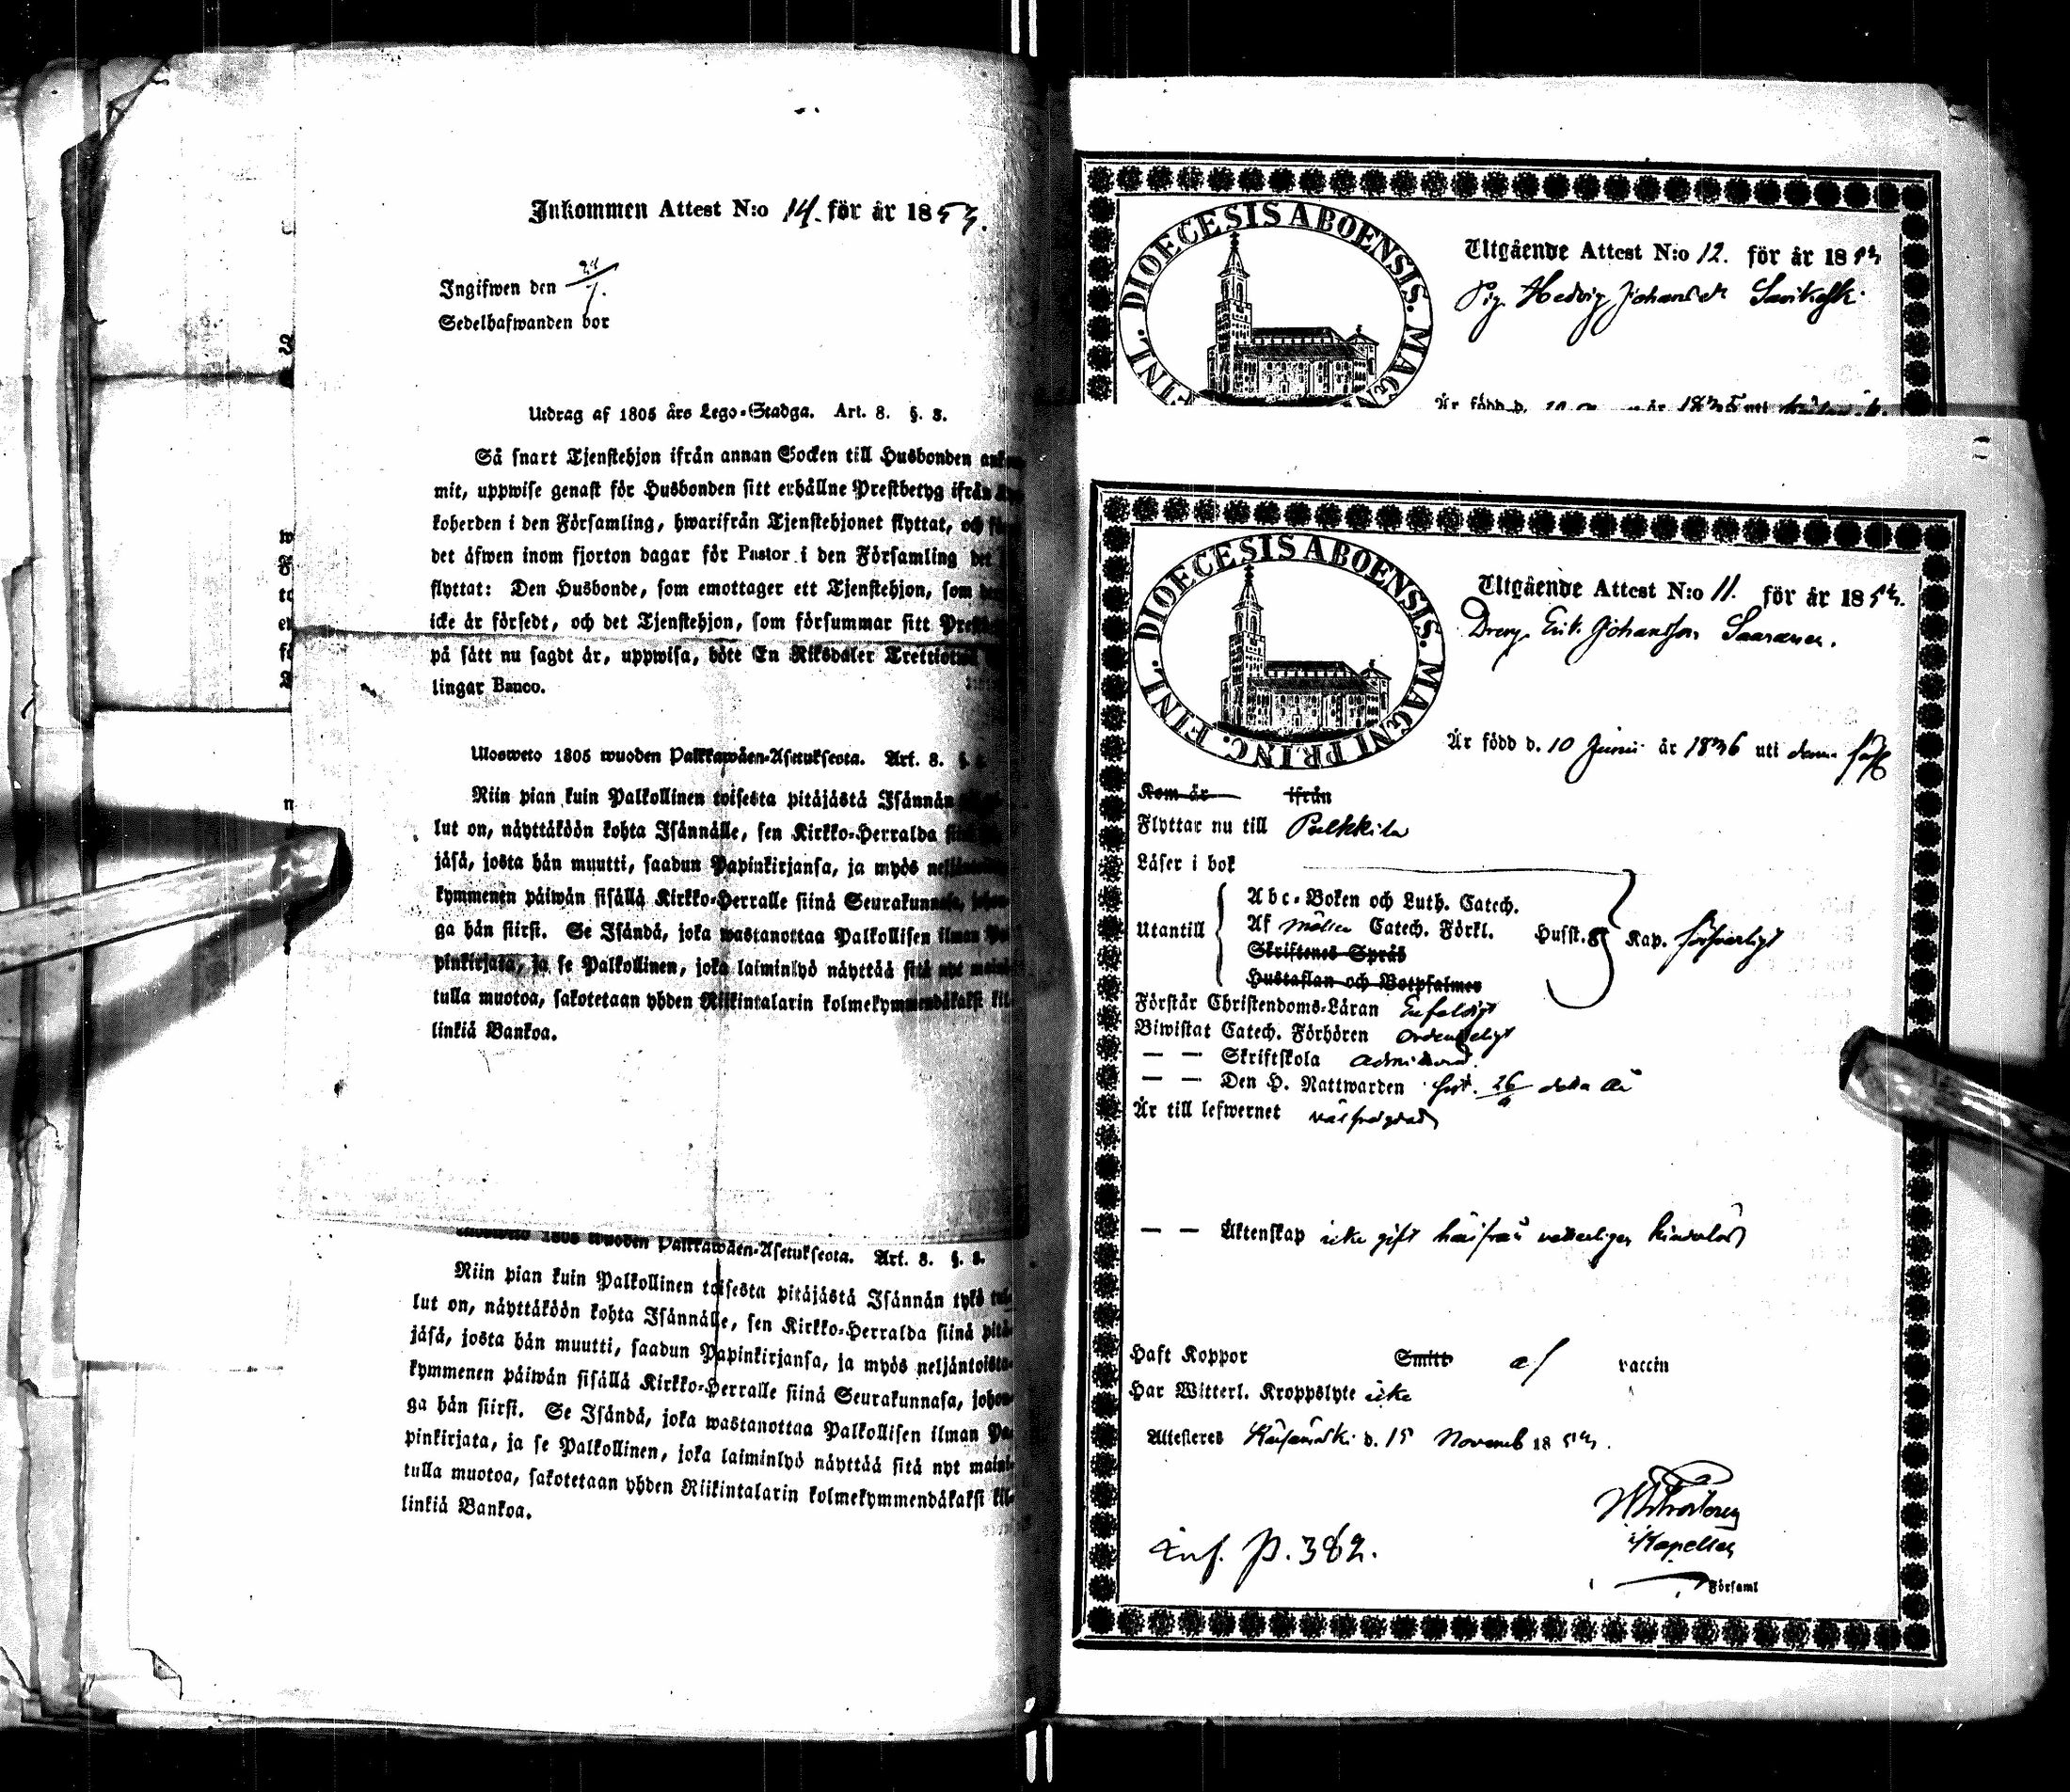 Inkommen Attest N:o 14. för år 1853.
Ingifwen den 24/1.
Sedelhafwanden bor
Utdrag af 1805 års Lego-Stadga. Art. 8. §. 3.
Så snart Tjenstehjon ifrån annan Socken till Husbonden
mit, uppwise genast för Husbonden sitt erhållne Prestbetyg ifrån
koherden i den Församling, hwarifrån Tjenstehjonet flyttat, och
det äfwen inom fjorton dagar för Pastor i den Församling det
flyttat: Den Husbonde, som emottager ett Tjenstehjon, som
icke är försedt, och det Tjenstehjon, som försummar sitt
på sätt nu sagdt är, uppwisa, böte En Riksdaler
lingar Banco.
Ulosweto 1805 wuoden Palkkawäen-Asetuksesta. Art. 8. §.
Niin pian kuin Palkollinen toisesta pitäjästä Isännän
lut on, näyttäköön kohta Isännälle, sen Kirkko-Herralda
jäsä, josta hän muutti, saadun Papinkirjansa, ja myös
kymmenen päiwän sisällä Kirkko-Herralle siinä Seurakunnasa,
ga hän siirsi. Se Isändä, joka wastanottaa Palkollisen ilman
pinkirjata, ja se Palkollinen, joka laiminlyö näyttää sitä nyt
tulla muotoa, sakotetaan yhden Riikintalarin kolmekymmendäkaksi kil-
linkiä Bankoa.
Ulosweto 1805 wuoden Palkkawäen-Asetuksesta. Art. 8. §. 3.
Niin pian kuin Palkollinen toisesta pitäjästä Isännän tykö tul-
lut on, näyttäköön kohta Isännälle, sen Kirkko-Herralda siinä pitä-
jäsä, josta hän muutti, saadun Papinkirjansa, ja myös neljäntoista-
kymmenen päiwän sisällä Kirkko-Herralle siinä Seurakunnasa, johon-
ga hän siirsi. Se Isändä, joka wastanottaa Palkollisen ilman Pa-
pinkirjata, ja se Palkollinen, joka laiminlyö näyttää sitä nyt maini-
tulla muotoa, sakotetaan yhden Riikintalarin kolmekymmendäkaksi kil-
linkiä Bankoa.
DIOECESIS ABOENSIS. MAGNI FINL.
Utgående Attest N:o 12. för år 18
Pig. Hedvig Johansdr
Är född d. år 1835 uti
DIOECESIS ABOENSIS. MAGNI PRINC. FINL.
Utgående Attest N:o 11. för år 18
Dreng Erik Johansson Saaranen.
Är född d. 10 Junii år 1836 uti denna
Kom år ifrån
Flyttar nu till Pulkkila
Läser i bok
Utantill
Abc-Boken och Luth. Catech.
Af Möllers Catech. Förkl. Husst. Kap. försvarligt
Skriftenes Språk
Hustaflan och Botpsalmer
Förstår Christendoms-Läran Enfeldigt
Biwistat Catech. Förhören ordenteligt
— — Skriftskola admitterad
— — Den H. Nattwarden först. 26/ detta år
Är till lefwernet välfrejdad
— — Äktenskap icke gift härifrån veterligen hinderlös
Haft Koppor Smitt af vaccin
Har Witterl. Kroppslyte icke
Attesteres Kärsämäki d. 15 Novemb 18
Kapellan
Församl
Inf. p. 382.